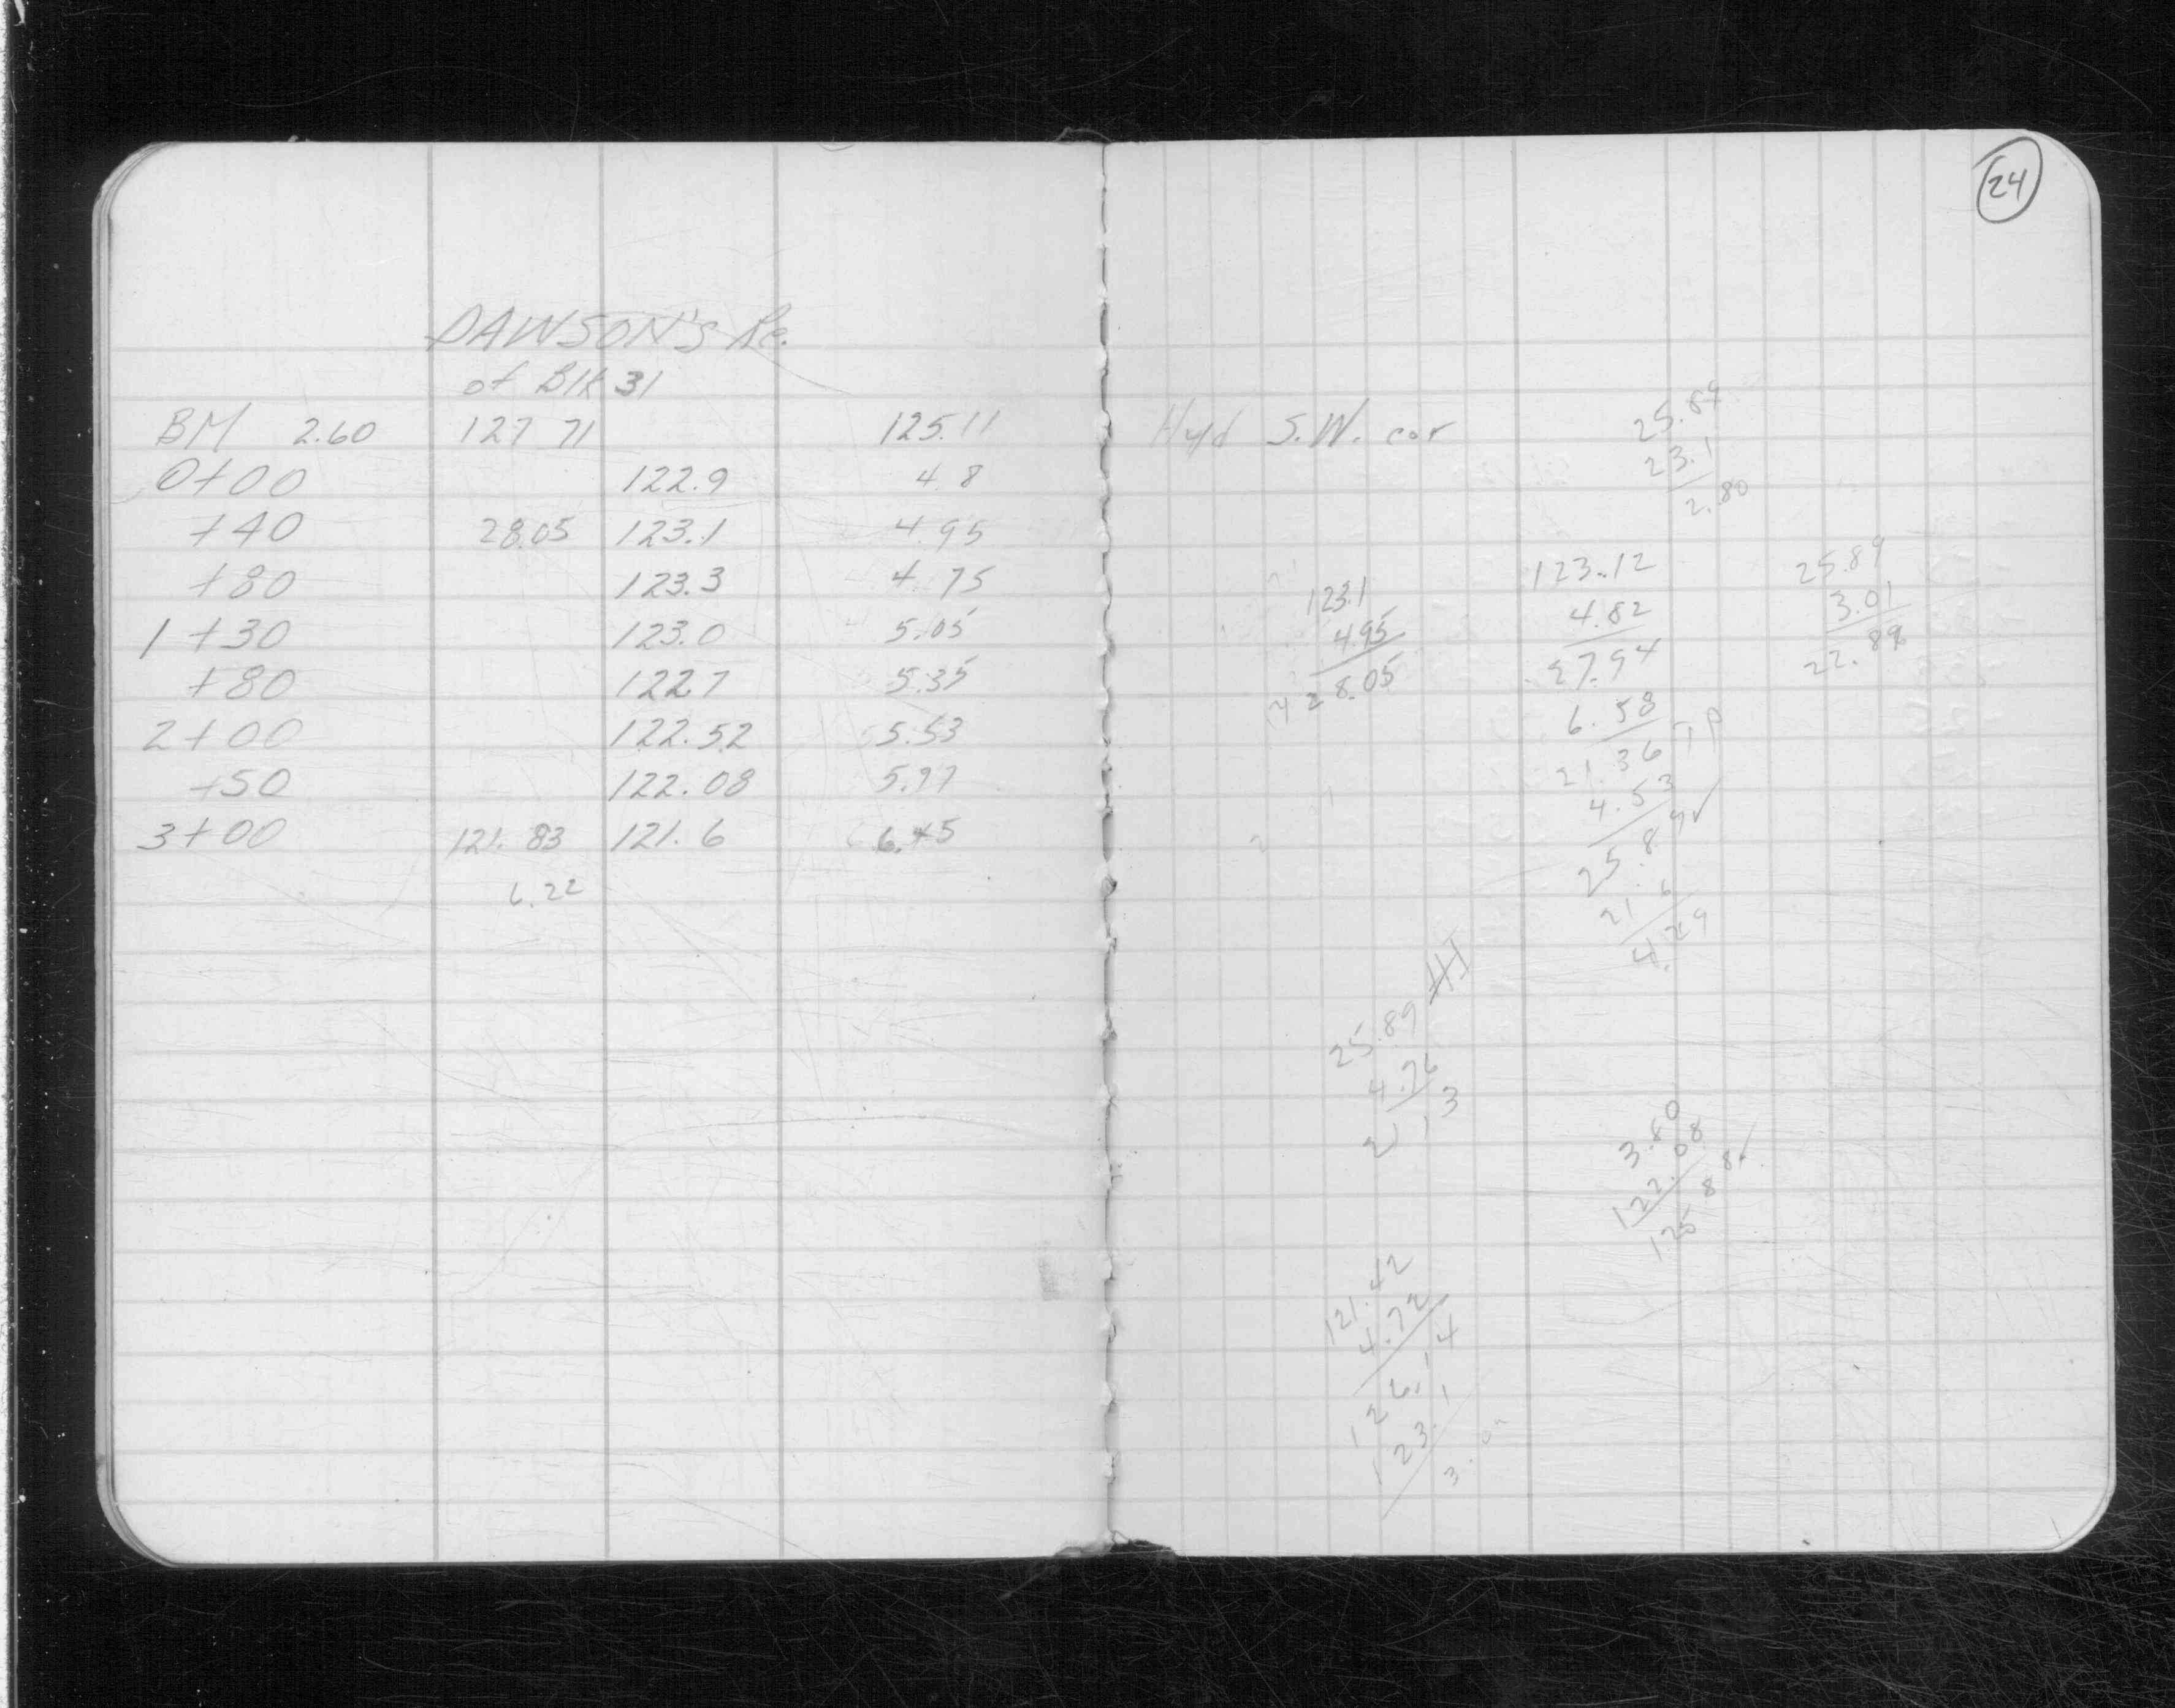 24
DAWSON'S Re.
of Blk 31
BM 2.60 127 71 125.11 Hyd S.W. cor
0+00 122.9 4.8
+40 28.05 123.1 4.95
+80 123.3 4.75
1+30 123.0 5.05
+80 122.7 5.35
2+00 122.52 5.53
+50 122.08 5.97
3+00 121.83 121.6 6.45
6.22
25.89
23.1
2.80
123.1
4.95
28.05
123.12
4.82
27.94
6.58
21.36 TP
4.53
25.89
21.6
4.29
25.89
3.01
22.88
25.89 HI
4.76
21 13
3.80
122.08
125 88
121.42
4.72
126.14
123.1
3.0